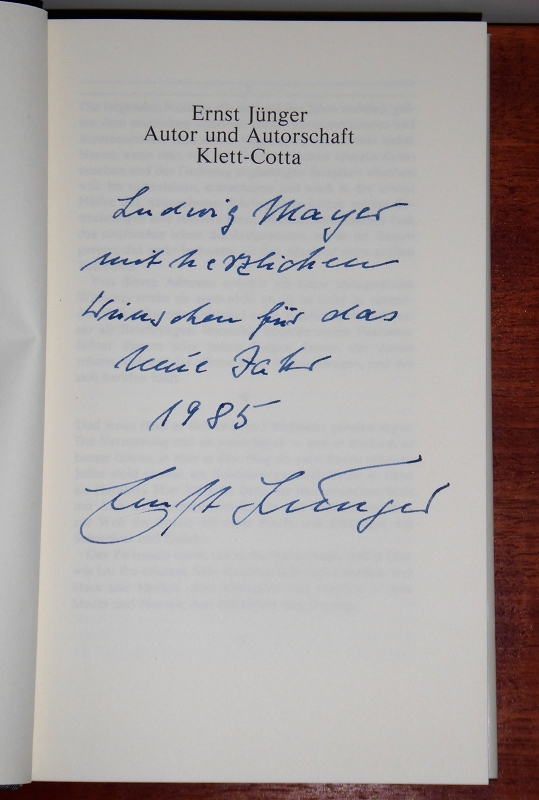 Ernst Jünger
Autor und Autorschaft
Klett-Cotta
Ludwig Mayer
mit herzlichen
Wünschen für das
Neue Jahr
1985
Ernst Jünger